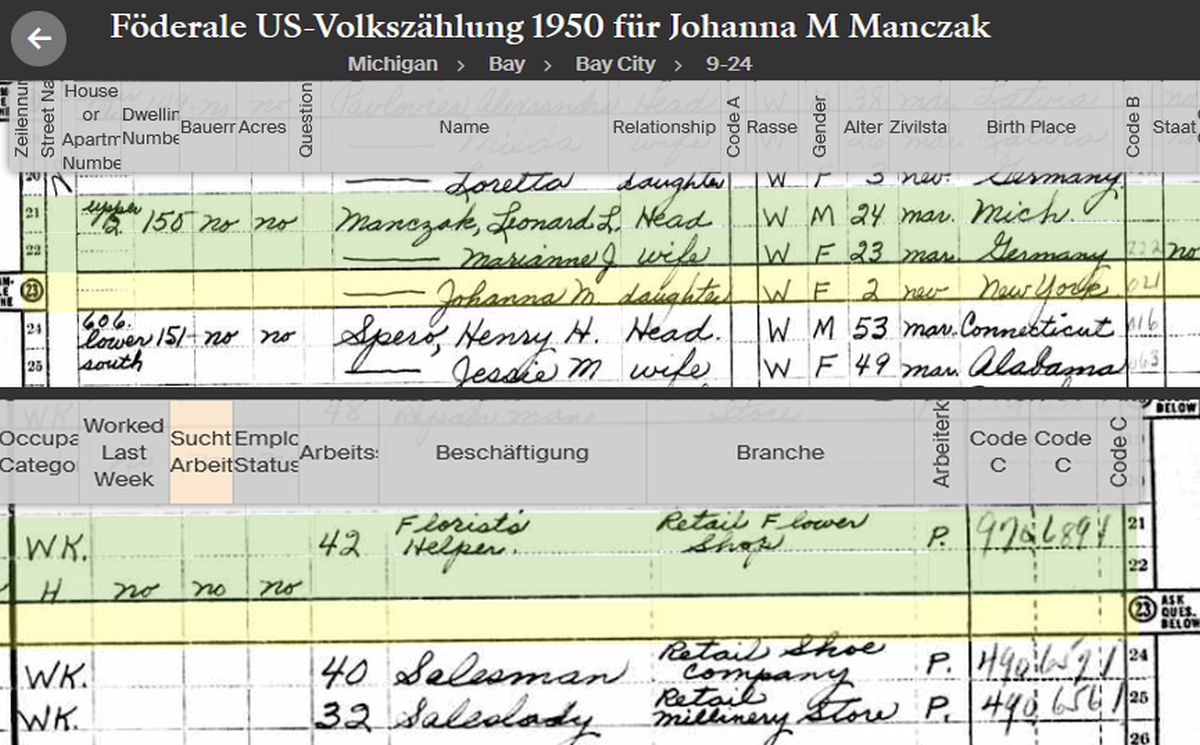 Föderale US-Volkszählung 1950 für Johanna M Manczak
Michigan > Bay > Bay City > 9-24
Zeilennun Street Na House or Apartm Numbe Dwellin Numbe Bauerr Acres Question Name Relationship Code A Rasse Gender Alter Zivilsta Birth Place Code B Staat
20 Loretta daughter W F 3 nev. Germany
21 upper 1/2 150 no no Manczak, Leonard L. Head W M 24 mar. Mich.
22 Marianne J wife W F 23 mar. Germany no
23 Johanna M daughter W F 2 nev New York 021
24 606. lower south 151 no no Spero, Henry H. Head. W M 53 mar. Connecticut
25 Jessie M wife W F 49 mar. Alabama
BELOW
Occupa Catego Worked Last Week Sucht Arbeit Emplo Status Arbeits Beschäftigung Branche Arbeiterk Code C Code C Code C
WK. 42 Florist's Helper. Retail Flower Shop P. 21
H no no no 22
23 ASK QUES. BELOW
WK. 40 Salesman Retail Shoe company P. 490 24
WK. 32 Saleslady Retail millinery Store P. 490 656 1 25
26